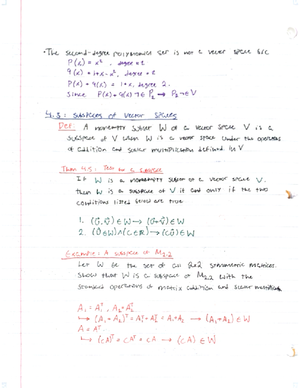 • The second-degree polynomials set is not a vector space b/c
P(x) = x², degree = 2
q(x) = 1+x-x², degree = 2
P(x) + q(x) = 1+x, degree 2.
Since P(x) + q(x) ∉ P₂ → P₂ ∉ V
4.3: Subspaces of Vector Spaces
Def: A nonempty subset W of a vector space V is a
subspace of V when W is a vector space under the operations
of addition and scalar multiplication defined in V
Thm 4.5: Test for a subspace
If W is a nonempty subset of a vector space V,
then W is a subspace of V if and only if the two
conditions listed below are true
1. (u⃗, v⃗) ∈ W → (u⃗+v⃗) ∈ W
2. (u⃗ ∈ W) ∧ (c ∈ R) → (cu⃗) ∈ W
Example: A subspace of M₂,₂
Let W be the set of all 2x2 symmetric matrices.
Show that W is a subspace of M₂,₂ with the
standard operations of matrix addition and scalar multiplication
A₁ = A₁ᵀ, A₂ = A₂ᵀ
↳ (A₁+A₂)ᵀ = A₁ᵀ + A₂ᵀ = A₁+A₂ → (A₁+A₂) ∈ W
A = Aᵀ
↳ (cA)ᵀ = cAᵀ = cA → (cA) ∈ W